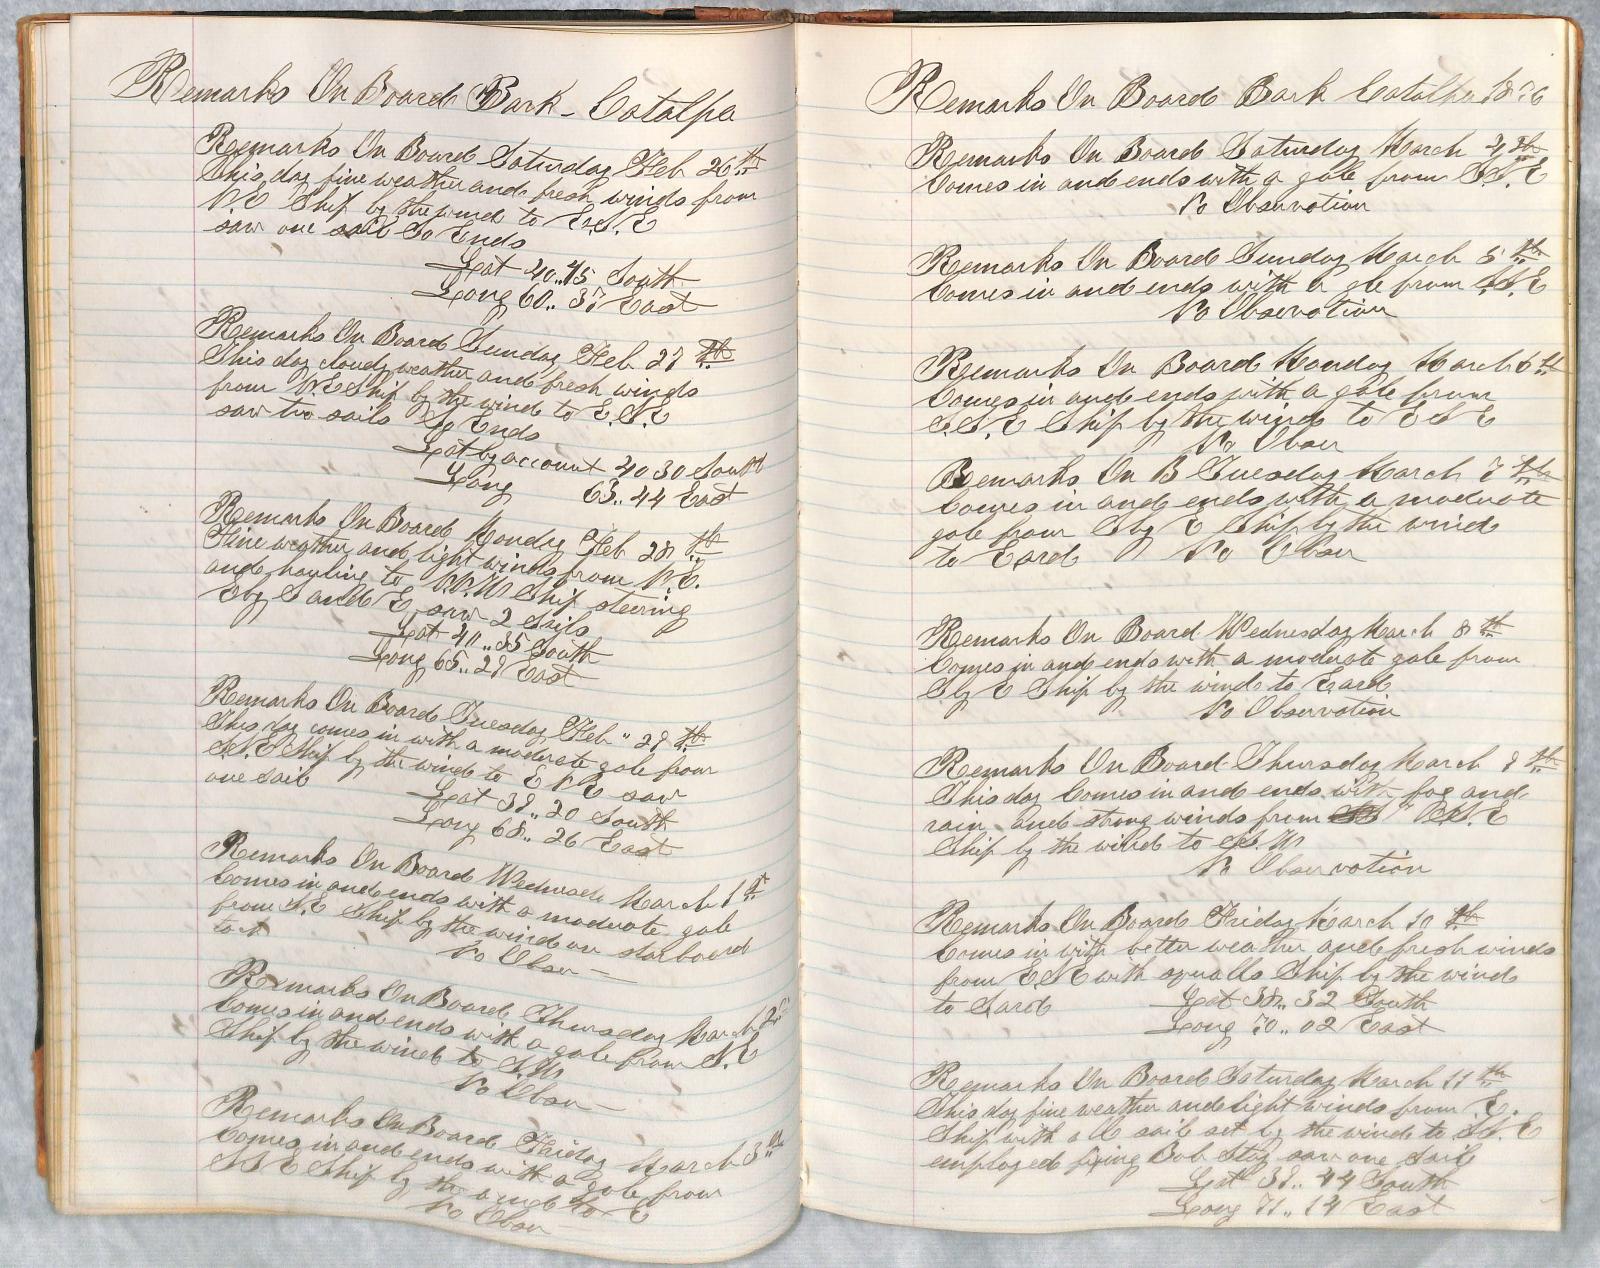 Remarks On Board Bark - Catalpa
Remarks On Board Saturday Feb 26th
This day fine weather and fresh winds from
N.E Ship by the wind to E.S.E
saw one sail So Ends
Lat 40..45 South
Long 60..37 East
Remarks On Board Sunday Feb 27th
This day cloudy weather and fresh winds
from N.E Ship by the wind to E.S.E
saw two sails So Ends
Lat by account 40 30 South
Long 63..44 East
Remarks On Board Monday Feb 28th
Fine weather and light winds from N.E.
and hauling to N.N.W Ship steering
E by S and E saw 2 Sails
Lat 40..35 South
Long 65..29 East
Remarks On Board Tuesday Feb " 29th
This day comes in with a moderate gale from
S.S.E Ship by the wind to E N E saw
one sail
Lat 39..20 South
Long 68..26 East
Remarks On Board Wednesd March 1st
Comes in and ends with a moderate gale
from S.E Ship by the wind on starboard
No Obser -
Remarks On Board Thursday March 2
Comes in and ends with a gale from S.E
Ship by the wind to S.W
No Obser -
Remarks On Board Friday March 3
Comes in and ends with a gale from
S S E Ship by the wind to E
No Obser
Remarks On Board Bark Catalpa 1876
Remarks On Board Saturday March 4th
Comes in and ends with a gale from S.S.E
No Observation
Remarks On Board Sunday March 5th
Comes in and ends with a gle from S.S.E
No Observation
Remarks On Board Monday March 6th
Comes in and ends with a gale from
S.S.E Ship by the wind to E S E
No Obser
Remarks On B Tuesday March 7th
Comes in and ends with a moderate
gale from S by E Ship by the wind
to Eard No Obser
Remarks On Board Wednesday March 8th
Comes in and ends with a moderate gale from
S by E Ship by the wind to Eard
No Observation
Remarks On Board Thursday March 9th
This day Comes in and ends with fog and
rain and strong winds from
Ship by the wind to S.W
No Observation
Remarks On Board Friday March 10th
Comes in with better weather and fresh winds
from E S E with squalls Ship by the wind
to Sard Lat 38..32 South
Long 70..02 East
Remarks On Board Saturday March 11th
This day fine weather and light winds from E.
Ship with all sail set by the wind to S.S.E
employed fixing Bob Stay saw one Sail
Lat 39..44 South
Long 71..14 East